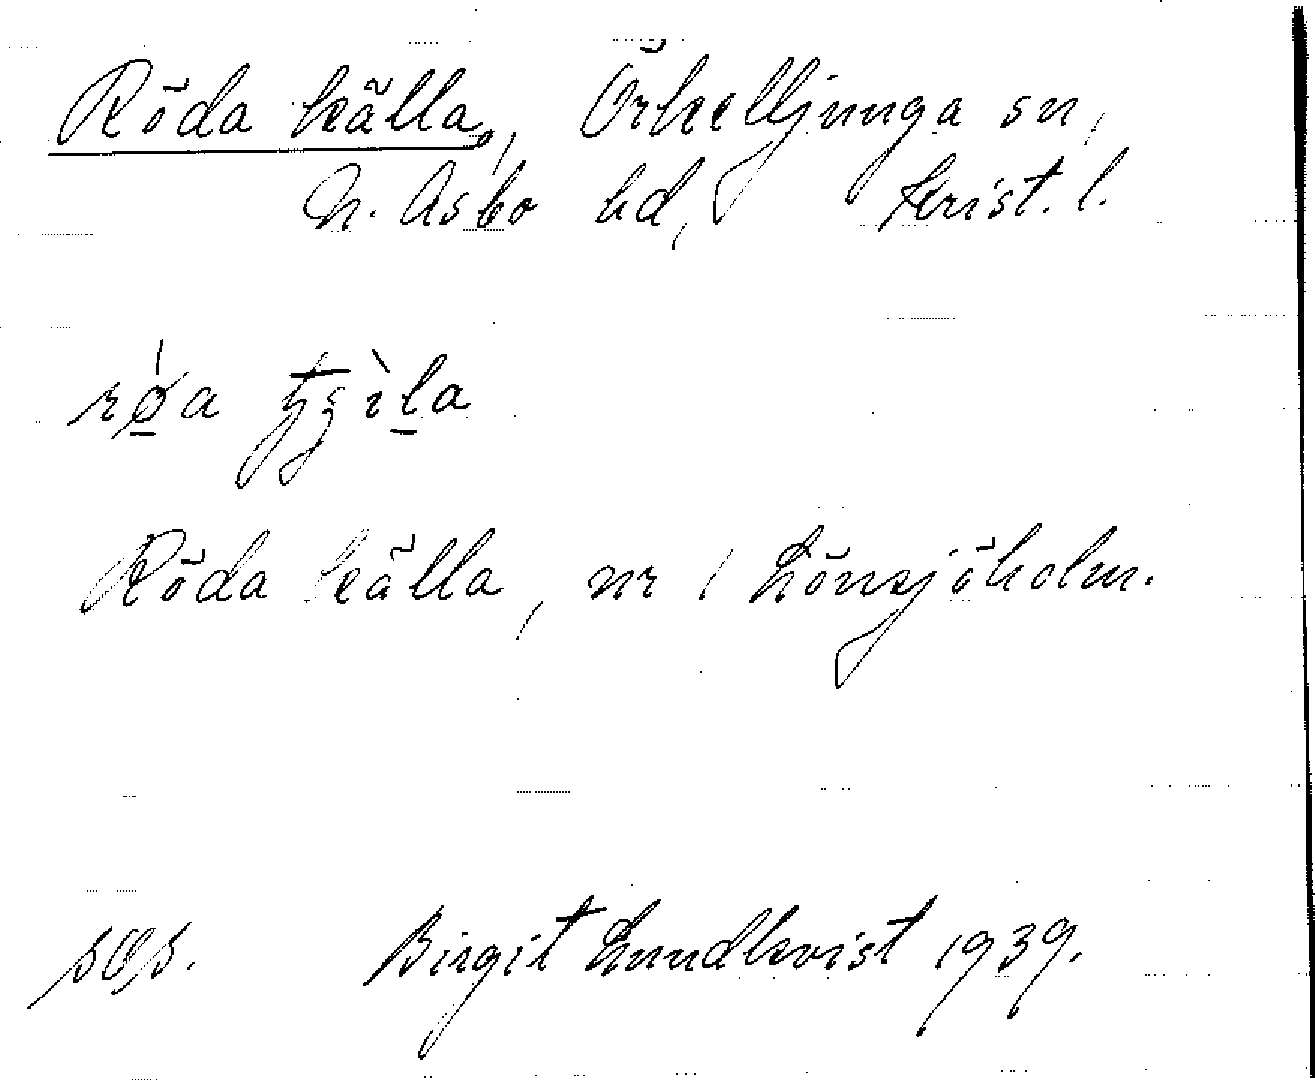 Röda källa, Örkelljunga sn,
N. Åsbo hd, Krist. l.
Röda källa, nr 1 Lönsjöholm.
Birgit Lundkvist 1939.